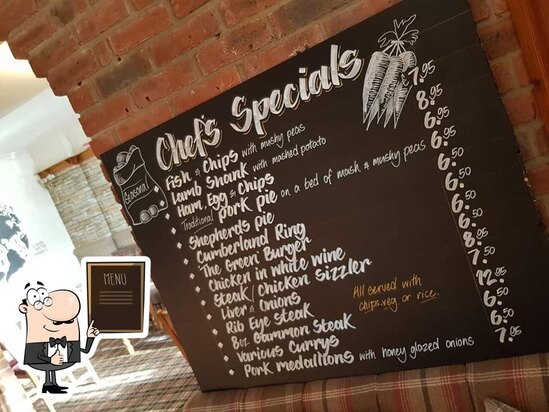 Chef's Specials
Seasonal
Fish & Chips with mushy peas 7.95
Lamb Shank with mashed potato 8.95
Ham, Egg & Chips 6.95
Traditional Pork Pie on a bed of mash & mushy peas 6.95
Shepherds Pie 6.50
Cumberland Ring 6.50
The Green Burger 6.50
Chicken in white wine 6.50
Steak / Chicken Sizzler 8.50
Liver & Onions 7.50
Rib Eye Steak 12.95
8oz Gammon Steak 6.95
Various Currys 6.50
Pork medallions with honey glazed onions 7.95
All served with
chips, veg or rice.
MENU